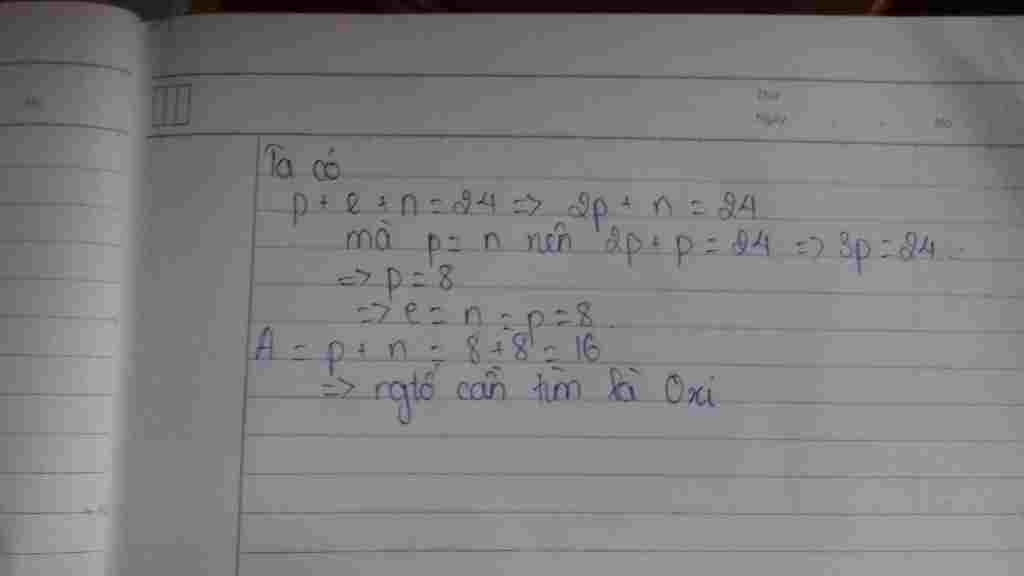 Thứ
Ngày . . No
Ta có
p + e + n = 24 => 2p + n = 24
mà p = n nên 2p + p = 24 => 3p = 24
=> p = 8
=> e = n = p = 8.
A = p + n = 8 + 8 = 16
=> ngtố cần tìm là Oxi